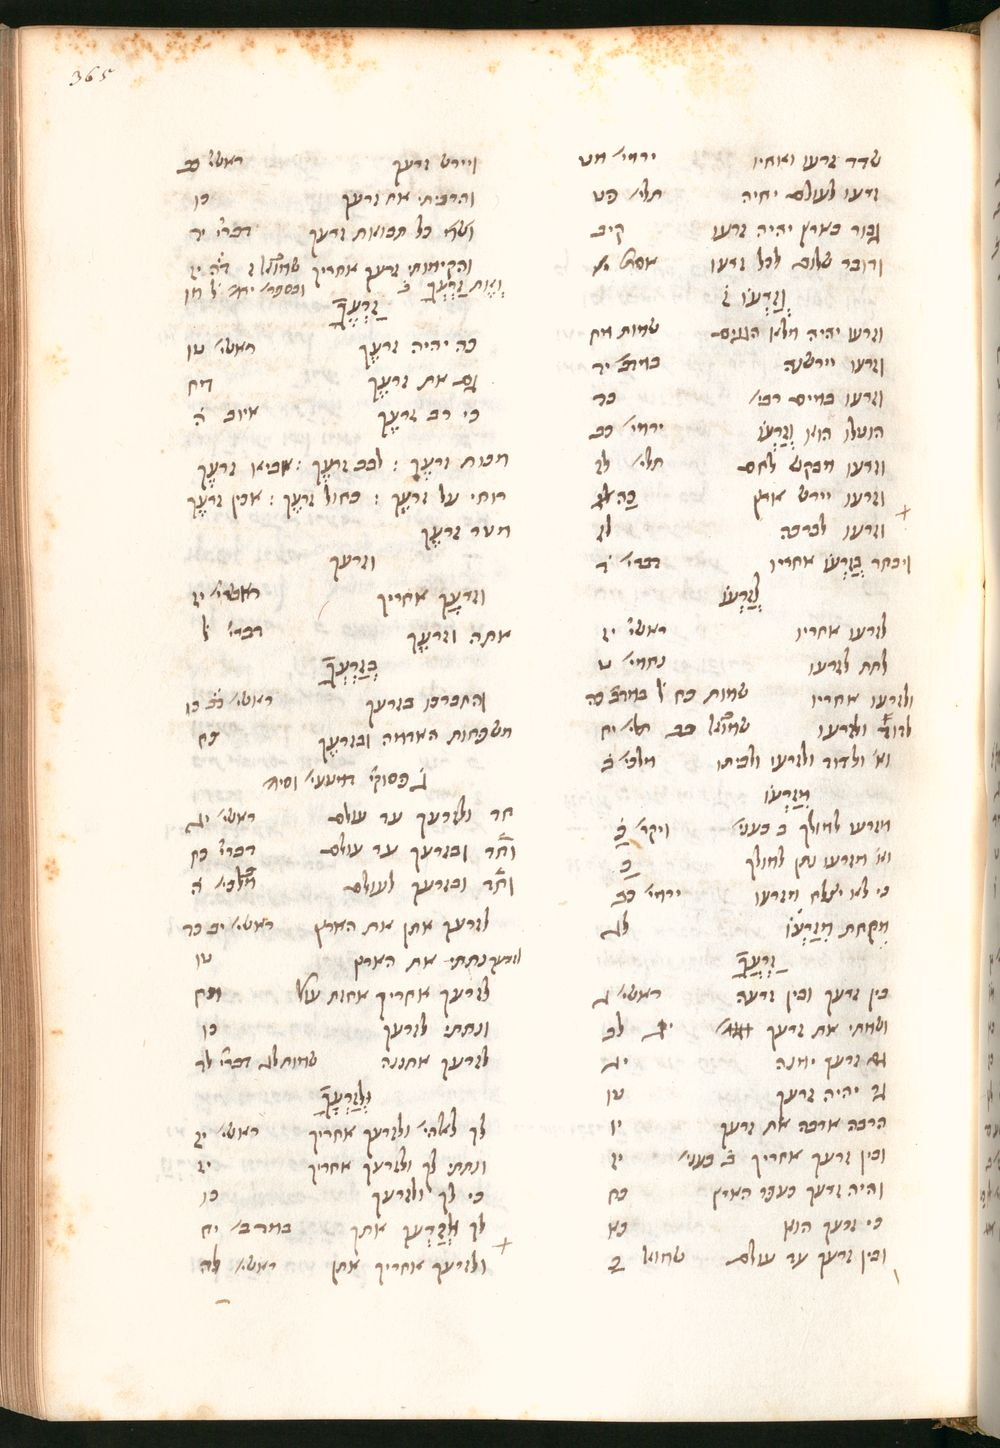 365
שדד זרעו ואחיו ירמי׳ מט
זרעו לעולם יהיה תלי׳ פט
גבור בארץ יהיה זרעו קיב
ודובר שלום לכל זרעו אסת׳ י׳
וְזַרְעוֹ ז
וזרעו יהיה מלא הגוים
וזרעו יירשנה במדב׳ יד
וזרעו במים רבי׳ כד
הוטלו הוא וְזַרְעוֹ ירמי׳ כב
וזרעו מבקש לחם תלי׳ לז
וזרעו יירש ארץ כה
וזרעו לברכה לז
ויבחר בְּזַרְעוֹ אחריו דברי׳ ד
לְזַרְעוֹ
לזרעו אחריו ראשי׳ יז
לתת לזרעו נחמי׳ ט
ולזרעו אחריו שמות כח ל׳ במדב׳ כה
לדוד ולזרעו שמואל כב תלי׳ יח
וא׳ ולדוד ולזרעו ולביתו מלכי׳ ב
מִזַּרְעוֹ
מזרעו למולך ב בעני׳ ויקר׳ כ
וא׳ מזרעו נתן למולך כ
כי לא יצלח מזרעו ירמי׳ כב
מקחת מִזַּרְעוֹ לג
זַרְעֲךָ
בין זרעך ובין זרעה ראשי׳ ג
ושמתי את זרעך יג לב
גם זרעך ימנה יג
גר יהיה זרעך טו
הרבה ארבה את זרעך יו
ובין זרעך אחריך ב בעני׳ יז
והיה זרעך כעפר הארץ כח
כי זרעך הוא כא
ובין זרעך עד עולם שמואל כ
ויירש זרעך ראשי׳ כב
והרביתי את זרעך כו
ושת כל תבואת זרעך דברי׳ יד
והקימותי זרעך אחריך שמואל ז דה יז
וְאֶת זַרְעֲךָ ב
זַרְעֶךָ
כה יהיה זרעֶך ראשי׳ טו
גם את זרעֶך מח
כי רב זרעֶך איוב ה
מכות זרעֶך : לבב זרעֶך : אביא זרעֶך
רוחי על זרעֶך : כחול זרעֶך : אכין זרעֶך
מעד זרעֶך
וזרעך
וזרעֲך אחריך ראשי׳ יז
אתה וזרעֶך דברי׳ ל
בְּזַרְעֲךָ
והתברכו בזרעך ראשי׳ כב כו
משפחות האדמה ובזרעֶך כח
ג פסוקי׳ דמטעי׳ וסי׳
חד ולזרעך עד עולם ראשי׳ יג
וחד ובזרעך עד עולם דברי׳ כח
וחד ובזרעך לעולם מלכי׳ ה
לזרעך אתן את הארץ ראשי׳ יב כד
לזרעך נתתי את הארץ טו
לזרעך אחריך אחזת עול׳ מח
ונתתי לזרעך כו
לזרעך אתננה שמות לג דברי׳ לד
וּלְזַרְעֲךָ
לך לאלהי׳ ולזרעך אחריך ראשי׳ יז
ונתתי לך ולזרעך אחריך יז
כי לך ולזרעך כו
לך וּלְזַרְעֲך אתך במדב׳ יח
ולזרעך אחריך אתן ראשי׳ לה